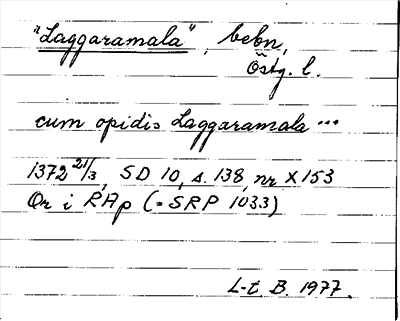 "Laggaramala", bebn,
Östg. l.
cum opidis Laggaramala ...
1372 21/3, SD 10, s. 138, nr X 153
Or i RAp (= SRP 1033)
L-t. B. 1977.